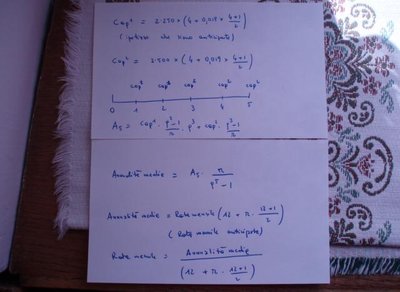 Cap¹ = 2.250 × (4 + 0,019 × 4+1/2)
Cap² = 2.500 × (4 + 0,019 × 4+1/2)
cap¹ cap¹ cap¹ cap² cap²
0 1 2 3 4 5
A₅ = cap¹ · q³-1/r · q² + cap² · q²-1/r
Annualità medie = A₅ · r/q⁵-1
Annualità medie = Rate mensile (12 + r · 12+1/2)
(Rate mensile anticipate)
Rate mensile = Annualità medie/(12 + r · 12+1/2)